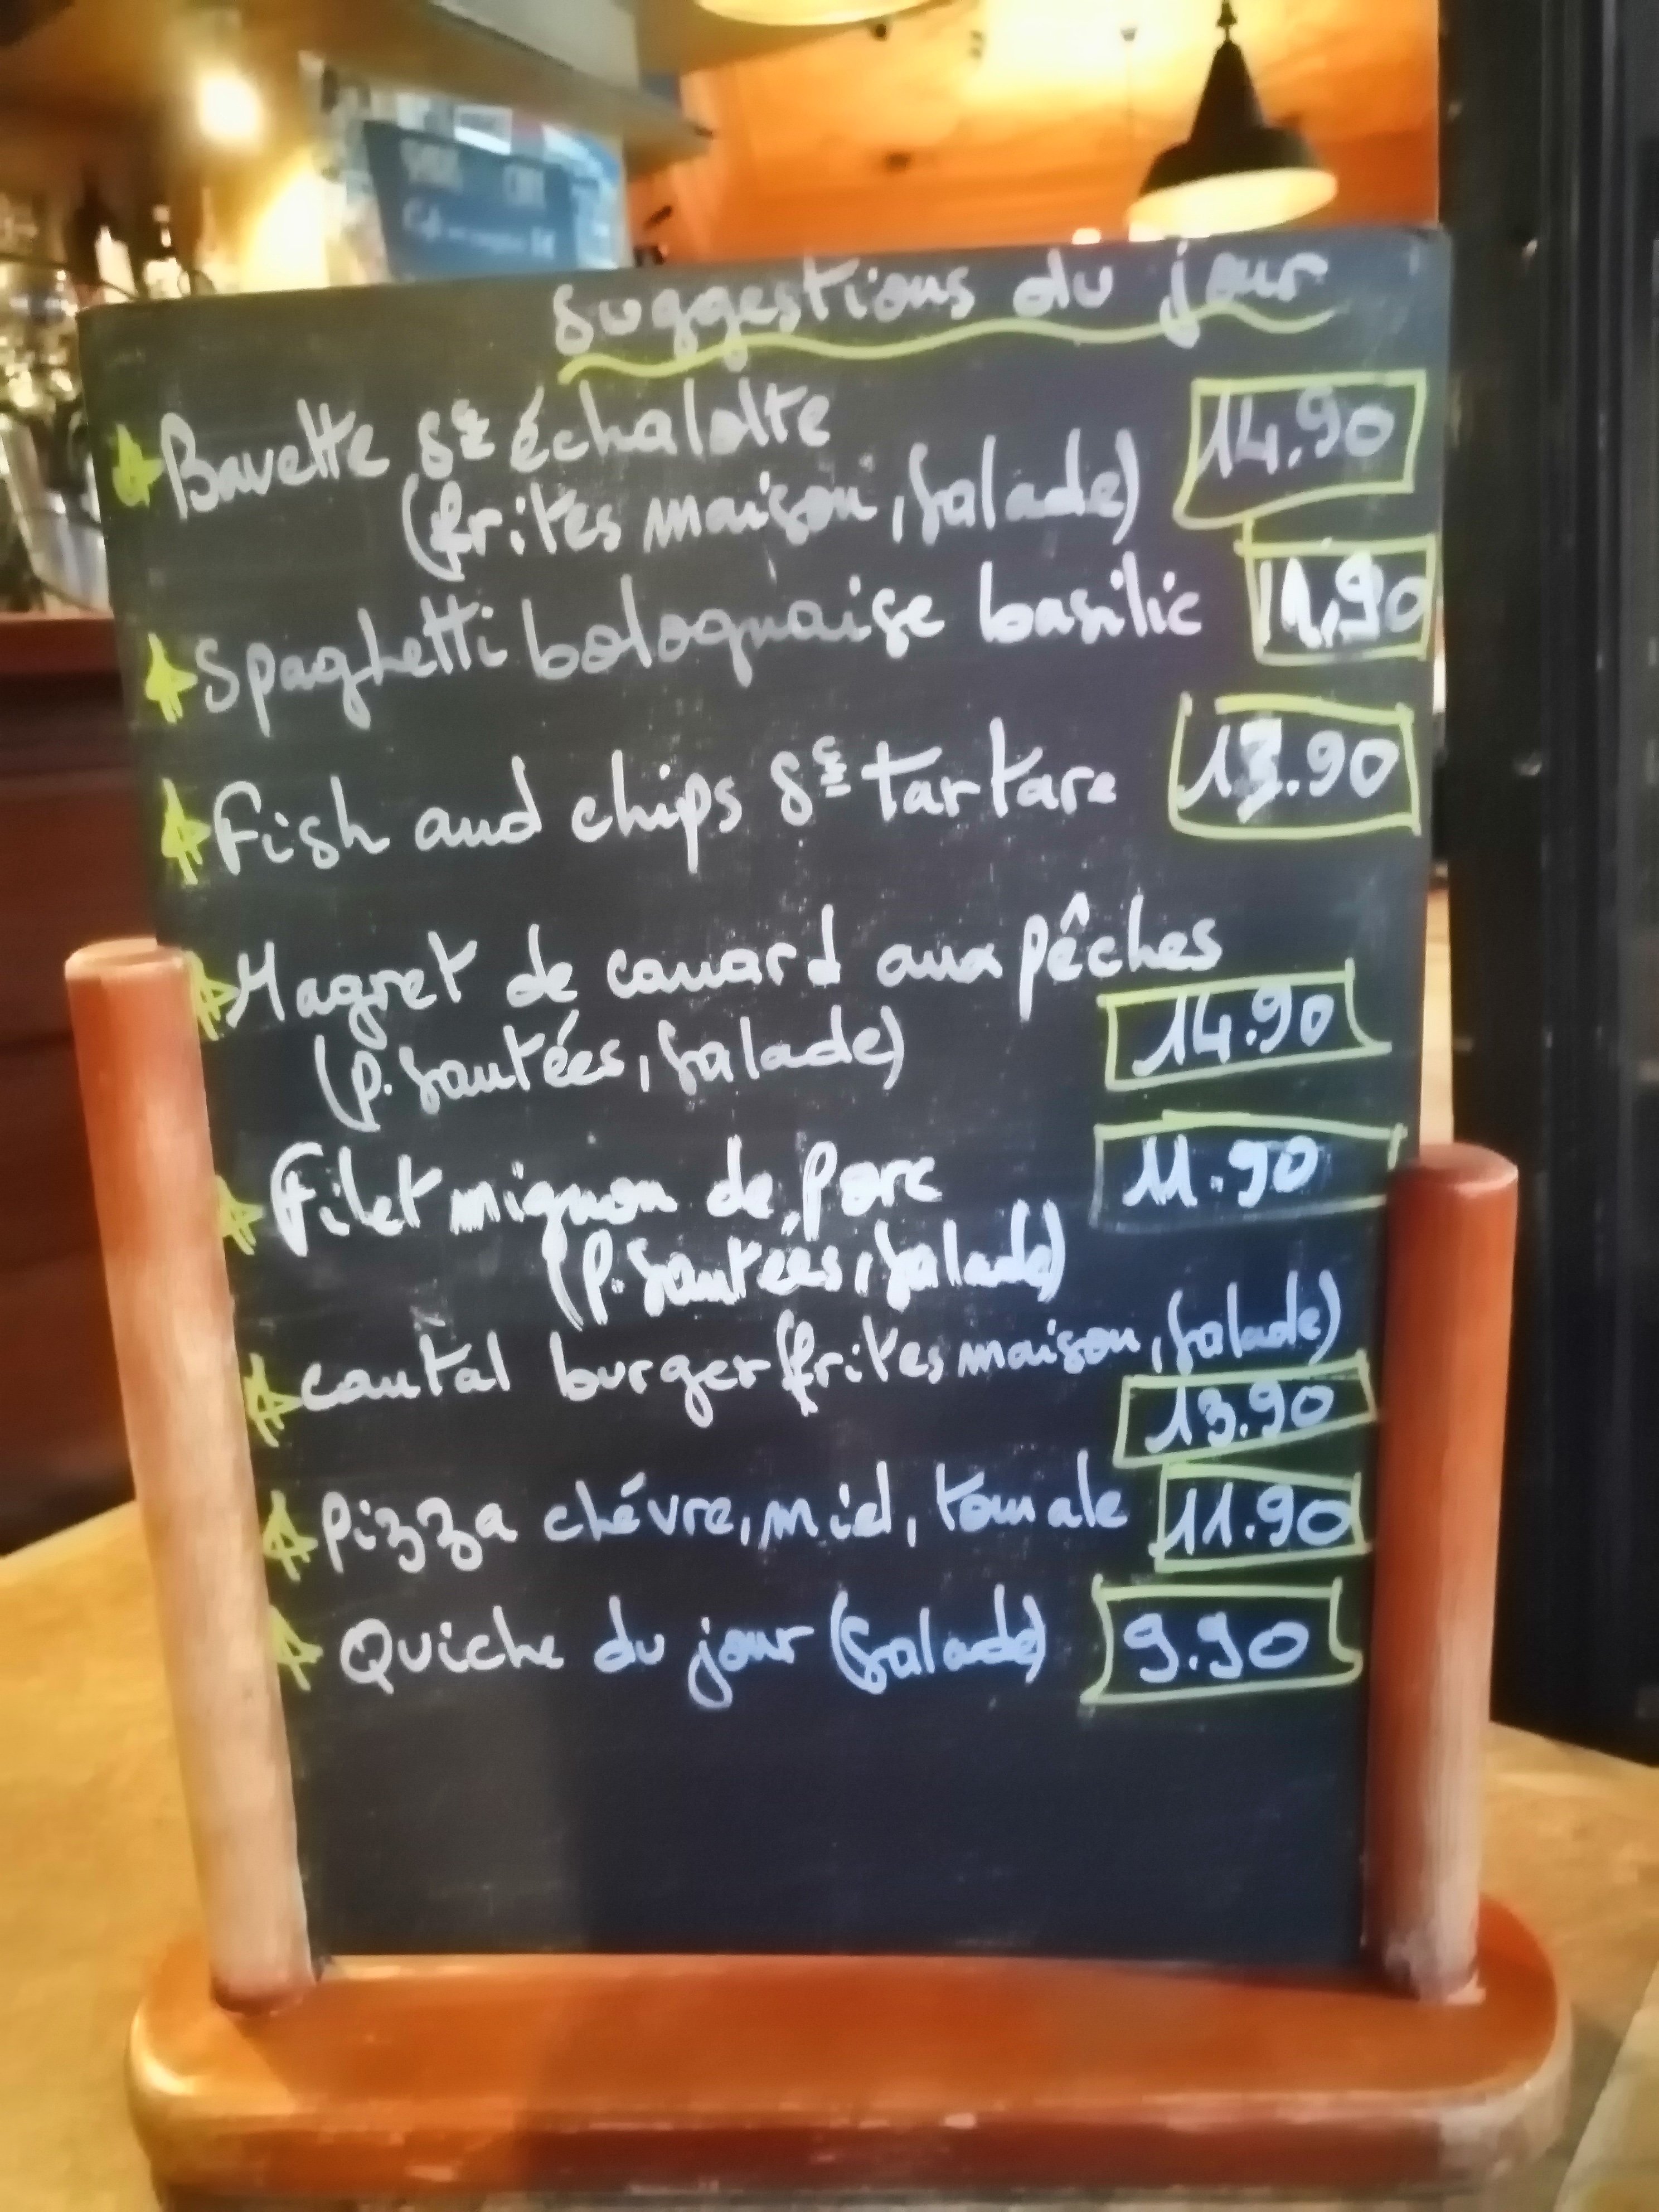 Suggestions du jour
Bavette Sce échalotte
14.90
(frites maison, salade)
Spaghetti bolognaise basilic
11.90
Fish and chips Sce tartare
13.90
Magret de canard aux pêches
(p. sautées, salade)
14.90
Filet mignon de porc
11.90
(p. sautées, salade)
cantal burger (frites maison, salade)
13.90
Pizza chévre, miel, tomate
11.90
Quiche du jour (salade)
9.90